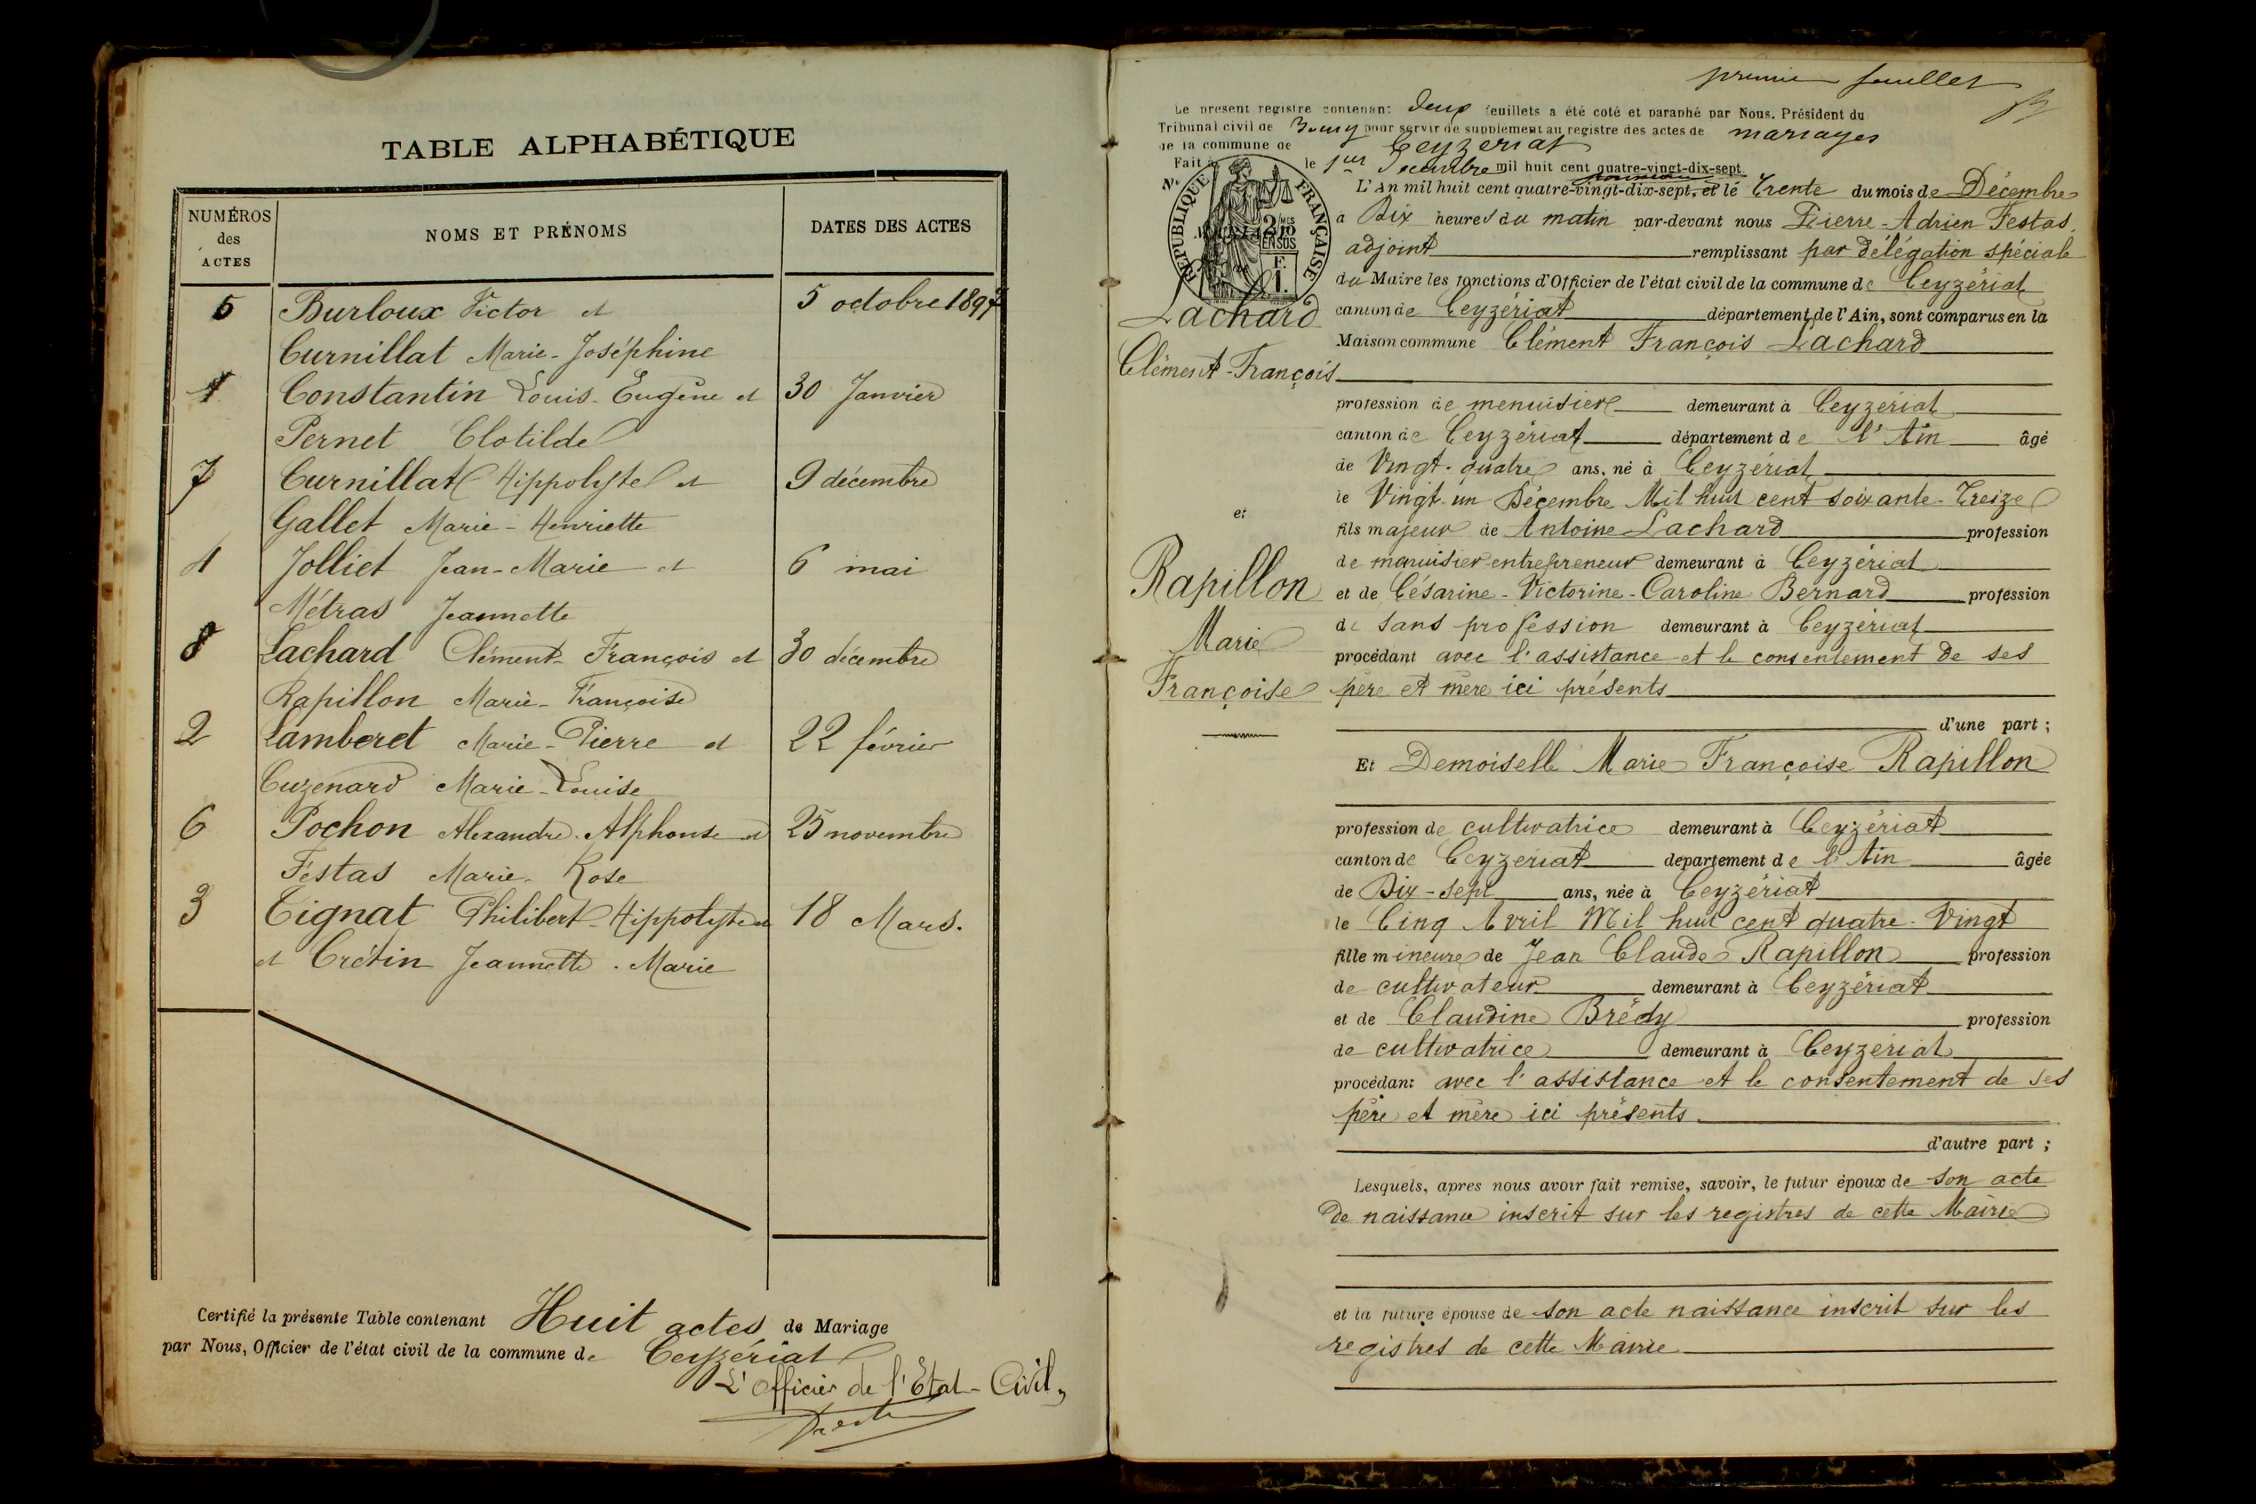 TABLE ALPHABÉTIQUE
NUMÉROS des ACTES
NOMS ET PRÉNOMS
DATES DES ACTES
5 Burloux Victor et 5 octobre 1897
Curnillat Marie-Joséphine
1 Constantin Louis-Eugène et 30 Janvier
Pernet Clotilde
7 Curnillat Hippolyte et 9 décembre
Gallet Marie-Henriette
4 Jolliet Jean-Marie et 6 mai
Métras Jeannette
8 Lachard Clément-François et 30 décembre
Rapillon Marie-Françoise
2 Lamberet Marie-Pierre et 22 février
Cuzenard Marie-Louise
6 Pochon Alexandre-Alphonse et 25 novembre
Festas Marie-Rose
3 Tignat Philibert-Hippolyte et 18 Mars.
et Crétin Jeannette-Marie
Certifié la présente Table contenant Huit actes de Mariage
par Nous, Officier de l'état civil de la commune de Ceyzériat
L'officier de l'Etat-Civil,
premier feuillet
Le present registre contenant deux feuillets a été coté et paraphé par Nous, Président du
Tribunal civil de Bourg pour servir de supplement au registre des actes de mariages
de la commune de Ceyzériat
Fait à le 1er Décembre mil huit cent quatre-vingt-dix-sept
RÉPUBLIQUE FRANÇAISE
2/10 EN SUS
No
L'An mil huit cent quatre-vingt-dix-sept, et le Trente du mois de Décembre
à Dix heures du matin par-devant nous Pierre-Adrien Festas,
adjoint remplissant par délégation spéciale
du Maire les fonctions d'Officier de l'état civil de la commune de Ceyzériat
Lachard
canton de Ceyzériat département de l'Ain, sont comparus en la
Maison commune Clément François Lachard
Clément-François
profession de menuisier demeurant à Ceyzériat
canton de Ceyzériat département de l'Ain âgé
de Vingt-quatre ans, né à Ceyzériat
le Vingt-un Décembre Mil huit cent soixante-Treize
et
fils majeur de Antoine Lachard profession
de menuisier-entrepreneur demeurant à Ceyzériat
Rapillon
et de Césarine-Victorine-Caroline Bernard profession
de sans profession demeurant à Ceyzériat
Marie
procédant avec l'assistance et le consentement de ses
Françoise
père et mère ici présents
d'une part ;
Et Demoiselle Marie Françoise Rapillon
profession de cultivatrice demeurant à Ceyzériat
canton de Ceyzériat departement de l'Ain âgée
de Dix-sept ans, née à Ceyzériat
le Cinq Avril Mil huit cent quatre-Vingt
fille mineure de Jean Claude Rapillon profession
de cultivateur demeurant à Ceyzériat
et de Claudine Brédy profession
de cultivatrice demeurant à Ceyzériat
procédant avec l'assistance et le consentement de ses
père et mère ici présents
d'autre part ;
Lesquels, apres nous avoir fait remise, savoir, le futur époux de son acte
de naissance inscrit sur les registres de cette Mairie
et la future épouse de son acte naissance inscrit sur les
registres de cette Mairie